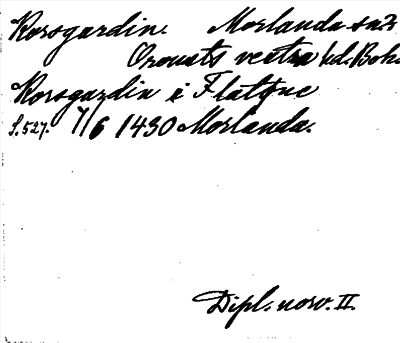 Korsgardin. Morlanda sn
Orousts vestra hd. Boh.
Korsgardin i Flatøne
S. 527. 7/6 1430 Morlanda.
Dipl. norv. II.